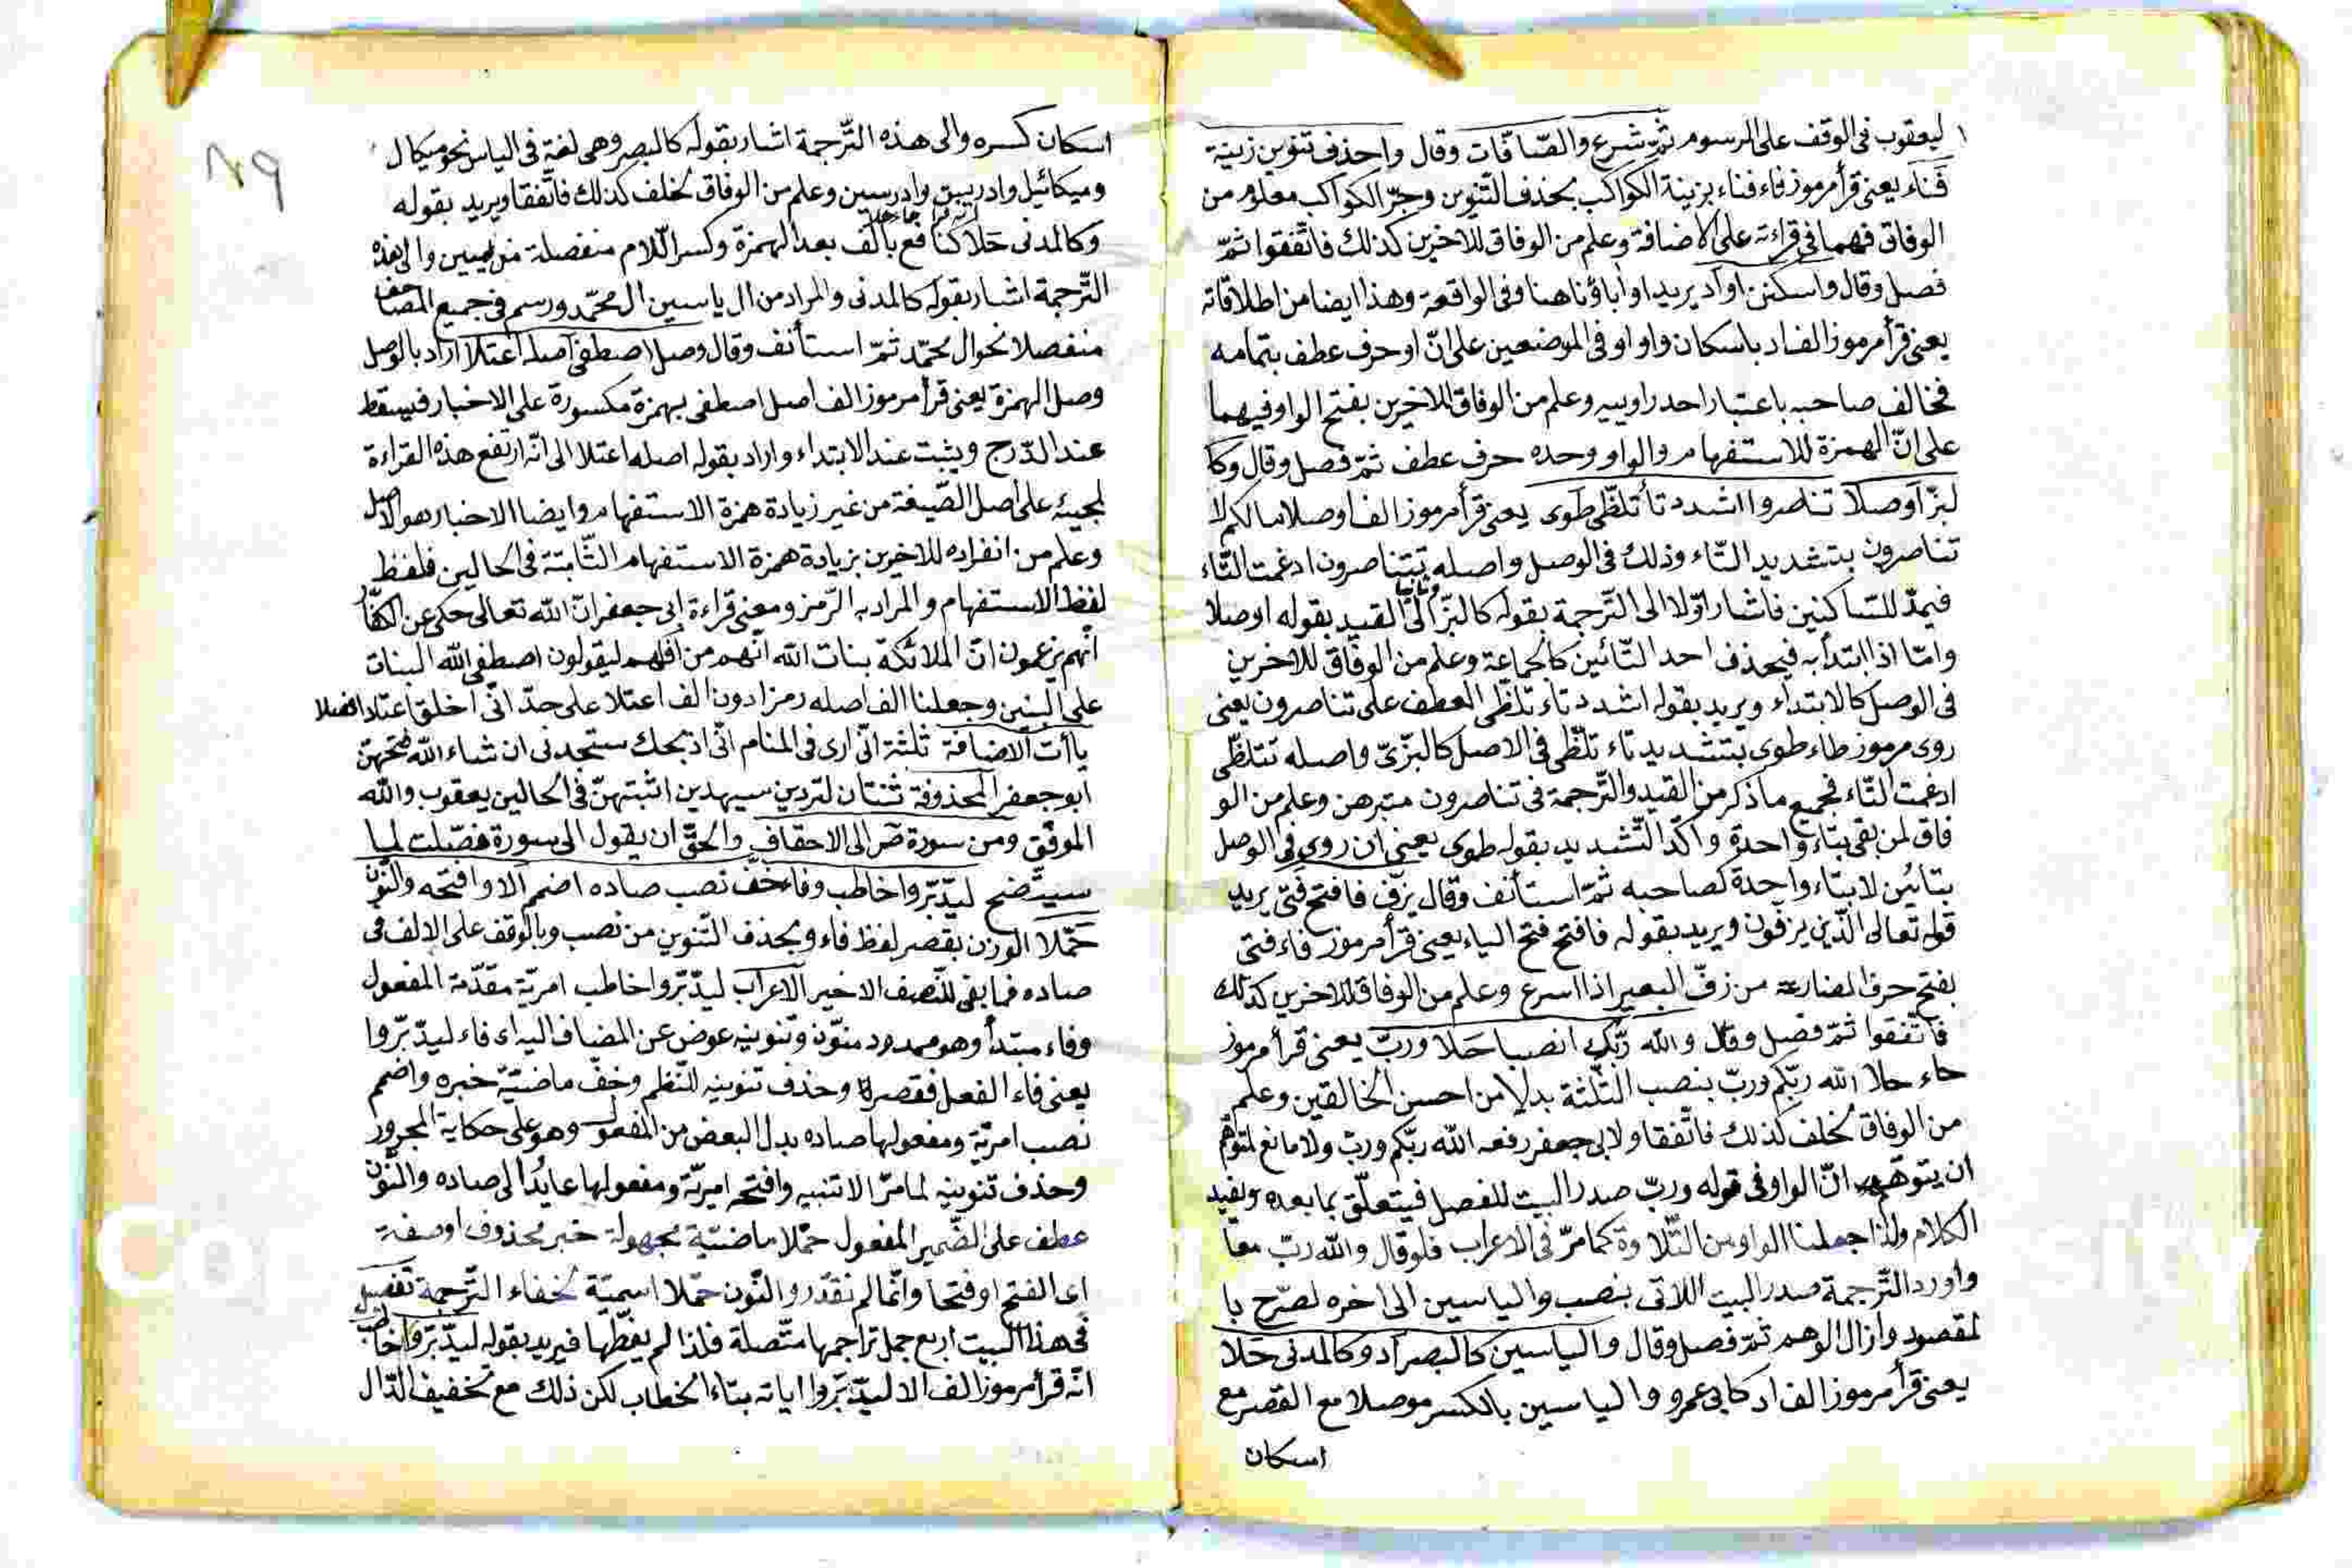 ليعقوب فى الوقف على المرسوم ثمّ شرع والصّافّات وقال واحذف تنوين زينة
فَنَاءً يعنى قرأ مرموز فاء فناء بزينة الكواكب بحذف التّنوين وجرّ الكواكب معلوم من
الوفاق فهما فى قراءته على الاضافة وعلم من الوفاق للاخرين كذلك فاتّفقوا ثمّ
فصل وقال واسكنن اواد يريد او اباؤنا هنا وفى الواقعة وهذا ايضا من اطلاقاته
يعنى قرأ مرموز الف اد باسكان واو او فى الموضعين على انّ او حرف عطف بتمامه
فخالف صاحبه باعتبار احد راوييه وعلم من الوفاق للاخرين بفتح الواو فيهما
على انّ الهمزة للاستفهام والواو وحده حرف عطف ثمّ فصل وقال وكا
لبزّ اوصلا تناصروا اشدد تا تلظّى طوى يعنى قرأ مرموز الف اوصلا مالكم لا
تناصرون بتشديد التّاء وذلك فى الوصل واصله تتناصرون ادغمت التّاء
فيمدّ للسّاكنين فاشار اوّلا الى التّرجمة بقوله كالبزّ وثانيا الى القيد بقوله اوصلا
وامّا اذا ابتدأ به فيحذف احد التّائين كالجماعة وعلم من الوفاق للاخرين
فى الوصل كالابتداء ويريد بقوله اشدد تاء تلظّى العطف على تناصرون يعنى
روى مرموز طاء طوى بتشديد تاء تلظّى فى الاصل كالبزّىّ واصله تتلظّى
ادغمت التّاء فجميع ما ذكر من القيد والتّرجمة فى تناصرون متبرهن وعلم من الو
فاق لمن بقى بتاء واحدة واكّد التّشديد بقوله طوى يعنى ان روى فى الوصل
بتائين لا بتاء واحدة كصاحبه ثمّ استأنف وقال يزفّ فافتح فتى يريد
قوله تعالى الّذين يزفّون ويريد بقوله فافتح فتح الياء يعنى قرأ مرموز فاء فتى
بفتح حرف المضارعة من زفّ البعير اذا اسرع وعلم من الوفاق للاخرين كذلك
فاتّفقوا ثمّ فصل وقال والله ربّكم انصبا حَلا وربّ يعنى قرأ مرموز
حاء حلا الله ربّكم وربّ بنصب الثّلثة بدلا من احسن الخالقين وعلم
من الوفاق لخلف كذلك فاتّفقا ولابى جعفر رفعه الله ربّكم وربّ ولا مانع لمتوهّم
ان يتوهّم انّ الواو فى قوله وربّ صدر البيت للفصل فيتعلّق بما بعده ويفيد
الكلام ولذا جعلنا الواو من التّلاوة كما مرّ فى الاعراب فلو قال والله ربّ معا
واورد التّرجمة صدر البيت اللاتى بنصب والياسين الى اخره لصرّح با
لمقصود وازال الوهم ثمّ فصل وقال والياسين كالبصر اد وكالمدنى حَلا
يعنى قرأ مرموز الف اد كابى عمرو والياسين بالكسر موصلا مع القصر مع
اسكان
٨٩
اسكان كسره والى هذه التّرجمة اشار بقوله كالبصر وهى لغة فى الياس نحو ميكال
وميكائيل وادريس وادرسين وعلم من الوفاق لخلف كذلك فاتّفقا ويريد بقوله
وكالمدنى حَلا كنافع بالف بعد الهمزة وكسر اللّام منفصلة من يسين والى هذه
التّرجمة اشار بقوله كالمدنى والمراد من ال ياسين ال محمّد ورسم فى جميع المصاحف
منفصلا نحو ال محمّد ثمّ استأنف وقال وصل اصطفى اصله اعتلا اراد بالوصل
وصل الهمزة يعنى قرأ مرموز الف اصل اصطفى بهمزة مكسورة على الاخبار فيسقط
عند الدّرج ويثبت عند الابتداء واراد بقوله اصله اعتلا الى انّه ارتفع هذه القراءة
لمجيئه على اصل الصّيغة من غير زيادة همزة الاستفهام وايضا الاخبار هو الاصل
وعلم من انفراده للاخرين بزيادة همزة الاستفهام الثّابتة فى الحالين فلفظ
لفظ الاستفهام والمراد به الرّمز ومعنى قراءة ابى جعفر انّ الله تعالى حكى عن الكفّار
انّهم يزعمون انّ الملائكة بنات الله انّهم من افكهم ليقولون اصطفى الله البنات
على البنين وجعلنا الف اصله رمزا دون الف اعتلا على حدّ انّى اخلق اعتاد افصلا
ياآت الاضافة ثلثة انّى ارى فى المنام انّى اذبحك ستجدنى ان شاء الله فتحهنّ
ابو جعفر المحذوفة ثنتان لتردين سيهدين اثبتهنّ فى الحالين يعقوب والله
الموفّق ومن سورة صۤ الى الاحقاف والحقّ ان يقول الى سورة فصّلت لما
سيتّضح ليدّبّروا خاطب وفا خفّ نصب صاده اضمم الا وافتحه والنّون
حَمّلا الوزن بقصر لفظ فاء وبحذف التّنوين من نصب وبالوقف على الالف فى
صاده فما بقى للنّصف الاخير الاعراب ليدّبّروا خاطب امريّة مقدّمة المفعول
وفاء مبتدأ وهو ممدود منوّن وتنوينه عوض عن المضاف اليه اى فاء ليدّبّروا
يعنى فاء الفعل فقصره وحذف تنوينه للنّظم وخفّ ماضيّة خبره واضمم
نصب امريّة ومفعولها صاده بدل البعض من المفعول وهو على حكاية المجرور
وحذف تنوينه لما مرّ الا تنبيه وافتحه امريّة ومفعولها عايد الى صاده والنّون
عطف على الضّمير المفعول حمّلا ماضيّة مجهولة خبر محذوف او صفة
اى الفتح او فتحا وانّما لم نقدّر والنّون حمّلا اسميّة لخفاء التّرجمة تفصيل
فى هذا البيت اربع جمل تراجمها متّصلة فلذا لم يفصّلها فيريد بقوله ليدّبّروا خاطب
انّه قرأ مرموز الف الا ليدّبّروا اياته بتاء الخطاب لكن ذلك مع تخفيف الدّال